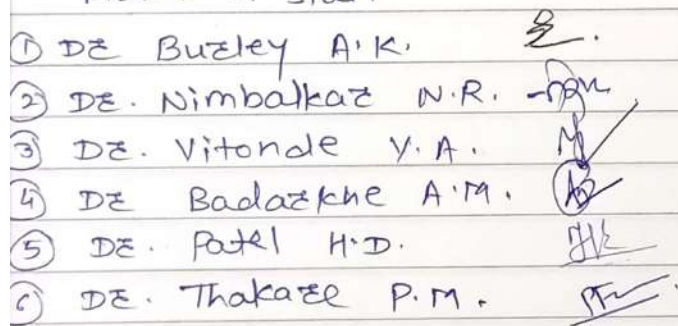 ① Dr Burley A.K.
② Dr. Nimbalkar N.R.
③ Dr. Vitonde Y.A.
④ Dr Badarkhe A.M.
⑤ Dr. Patel H.D.
⑥ Dr. Thakare P.M.